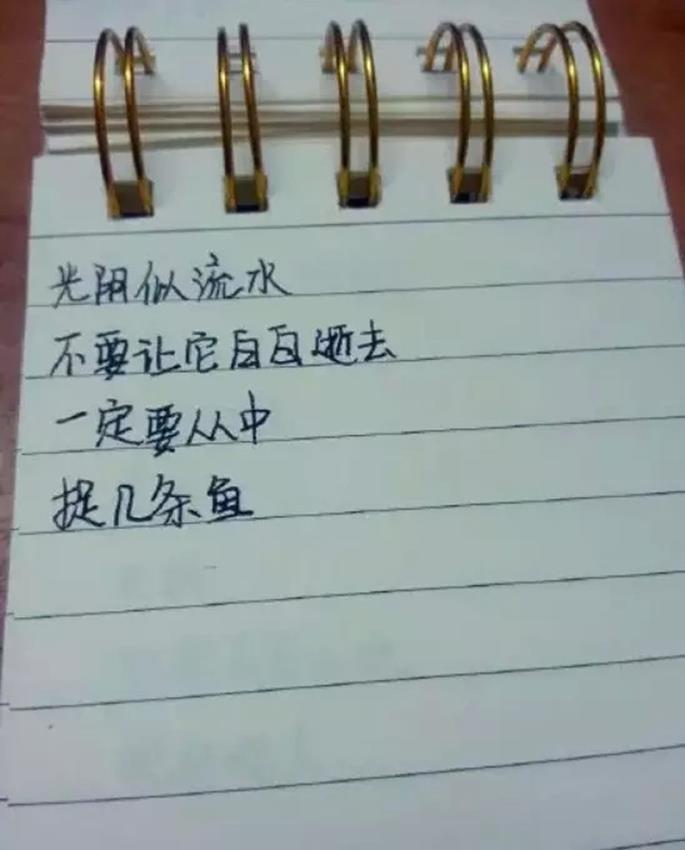 光阴似流水
不要让它白白逝去
一定要从中
捉几条鱼